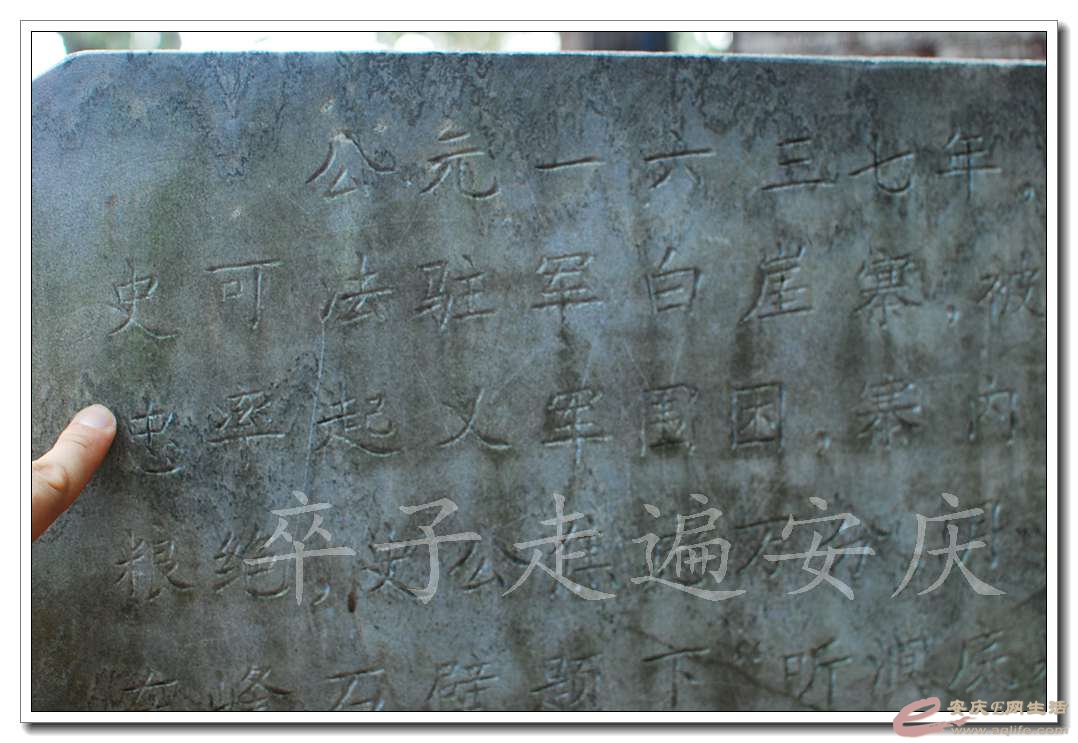 公元一六三七年，
史可法驻军白崖寨，被
忠率起义军围困，寨内
粮绝，史公 万分
峰石壁题下“听涧
卒子走遍安庆
安庆E网生活
www.aqlife.com